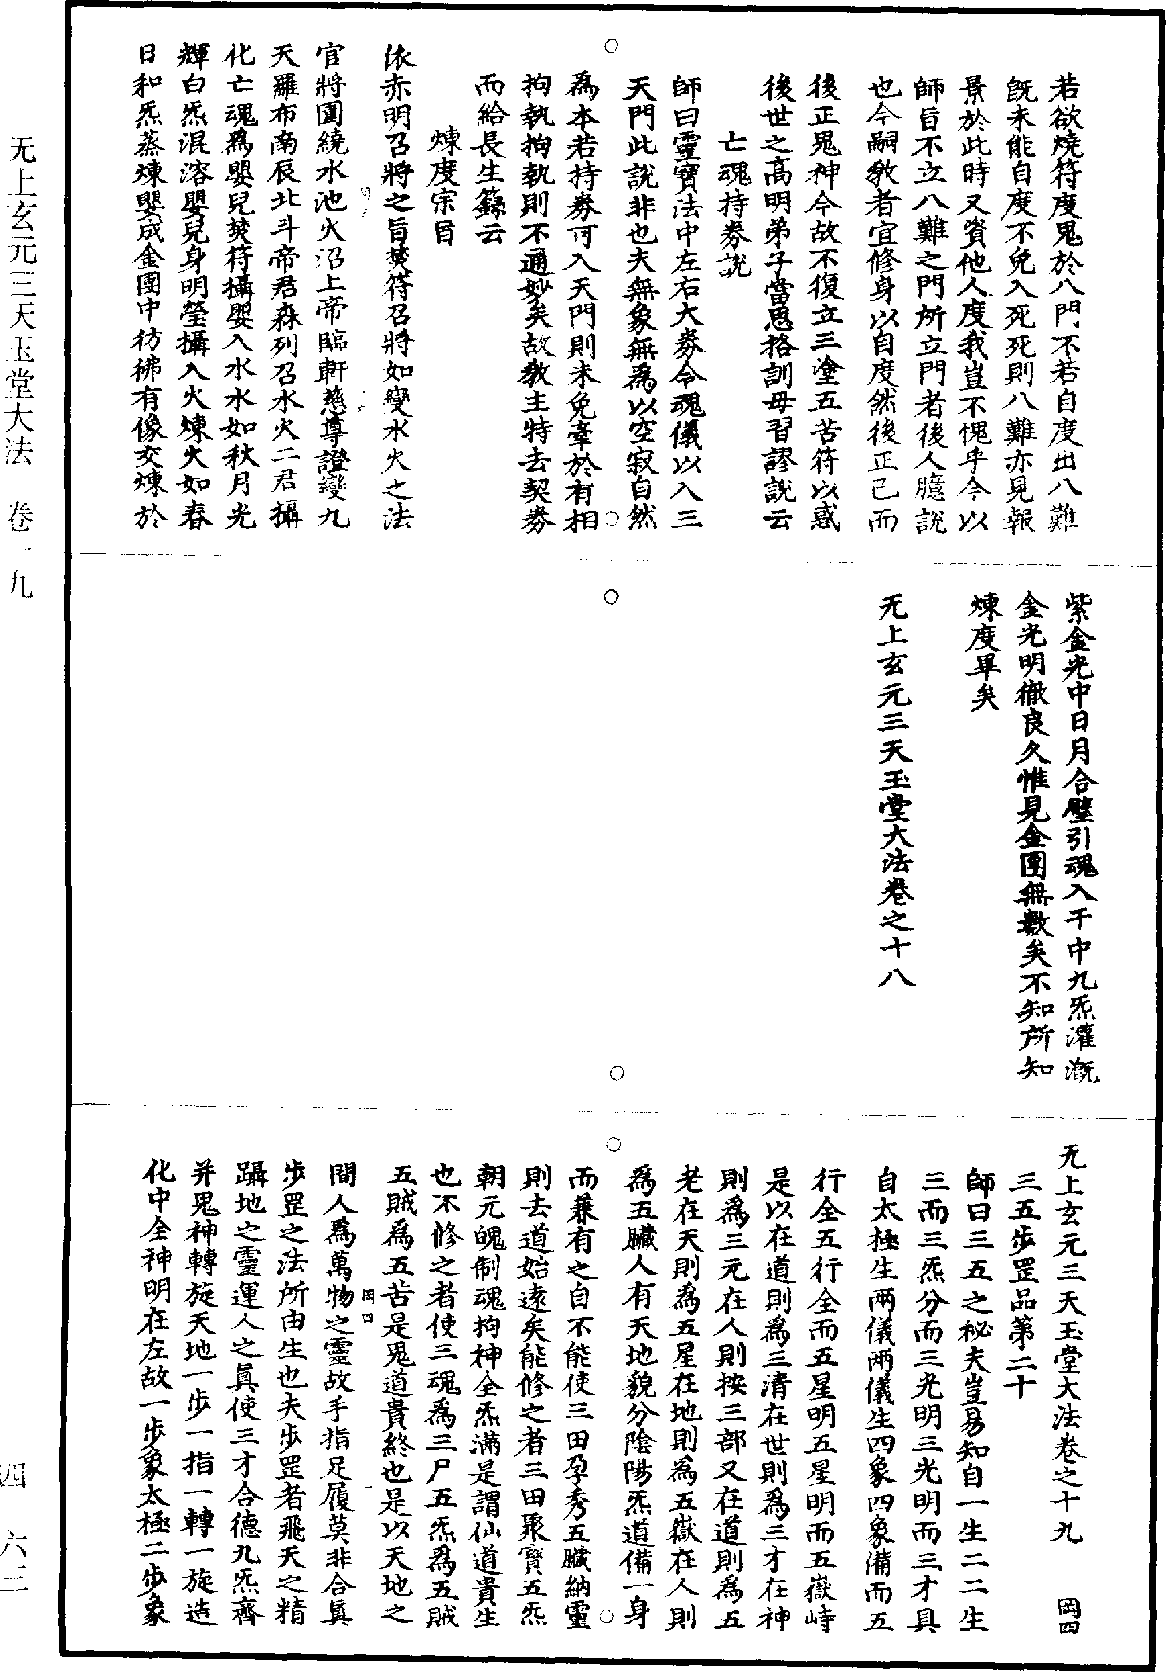 若欲燒符度鬼於八門不若自度出八難
旣未能自度不免入死死則八難亦見報
景於此時又資他人度我豈不愧乎今以
師旨不立八難之門所立門者後人臆說
也今嗣教者宜修身以自度然後正己而
後正鬼神今故不復立三塗五苦符以惑
後世之高明弟子當思格訓毋習謬說云
亡魂持券說
師曰靈寶法中左右大券令魂儀以入三
天門此說非也夫無象無為以空寂自然
為本若持券可入天門則未免牽於有相
拘執拘執則不通妙矣故教主特去契券
而給長生籙云
煉度宗旨
依赤明召將之旨焚符召將如變水火之法
官將圍繞水池火沼上帝臨軒慈尊證變九
天羅布南辰北斗帝君森列召水火二君攝
化亡魂為嬰兒焚符攝嬰入水水如秋月光
輝白炁混溶嬰兒身明瑩攝入火煉火如春
日和炁蒸煉嬰成金團中彷彿有像交煉於
紫金光中日月合璧引魂入于中九炁灌溉
金光明徹良久惟見金團無數矣不知所知
煉度畢矣
无上玄元三天玉堂大法卷之十八
无上玄元三天玉堂大法卷之十九 岡四
三五步罡品第二十
師曰三五之秘夫豈易知自一生二二生
三而三炁分而三光明三光明而三才具
自太極生兩儀兩儀生四象四象備而五
行全五行全而五星明五星明而五嶽峙
是以在道則為三清在世則為三才在神
則為三元在人則按三部又在道則為五
老在天則為五星在地則為五嶽在人則
為五臟人有天地貌分陰陽炁道備一身
而兼有之自不能使三田孕秀五臟納靈
則去道始遠矣能修之者三田聚寶五炁
朝元魄制魂拘神全炁滿是謂仙道貴生
也不修之者使三魂為三尸五炁為五賊
五賊為五苦是鬼道貴終也是以天地之
間人為萬物之靈故手指足履莫非合眞
步罡之法所由生也夫步罡者飛天之精
躡地之靈運人之眞使三才合德九炁齊
并鬼神轉旋天地一步一指一轉一旋造
化中全神明在左故一步象太極二步象
岡四
无上玄元三天玉堂大法 卷一九
四 六二